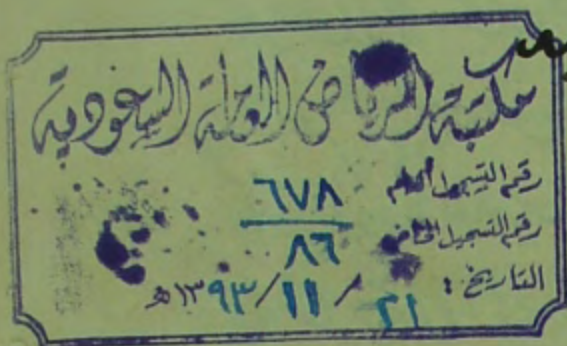 مكتبة الرياض العامة السعودية
رقم التسجيل العام ٦٧٨
رقم التسجيل الخاص ٨٦
التاريخ : ٢١ / ١١ / ١٣٩٣ هـ